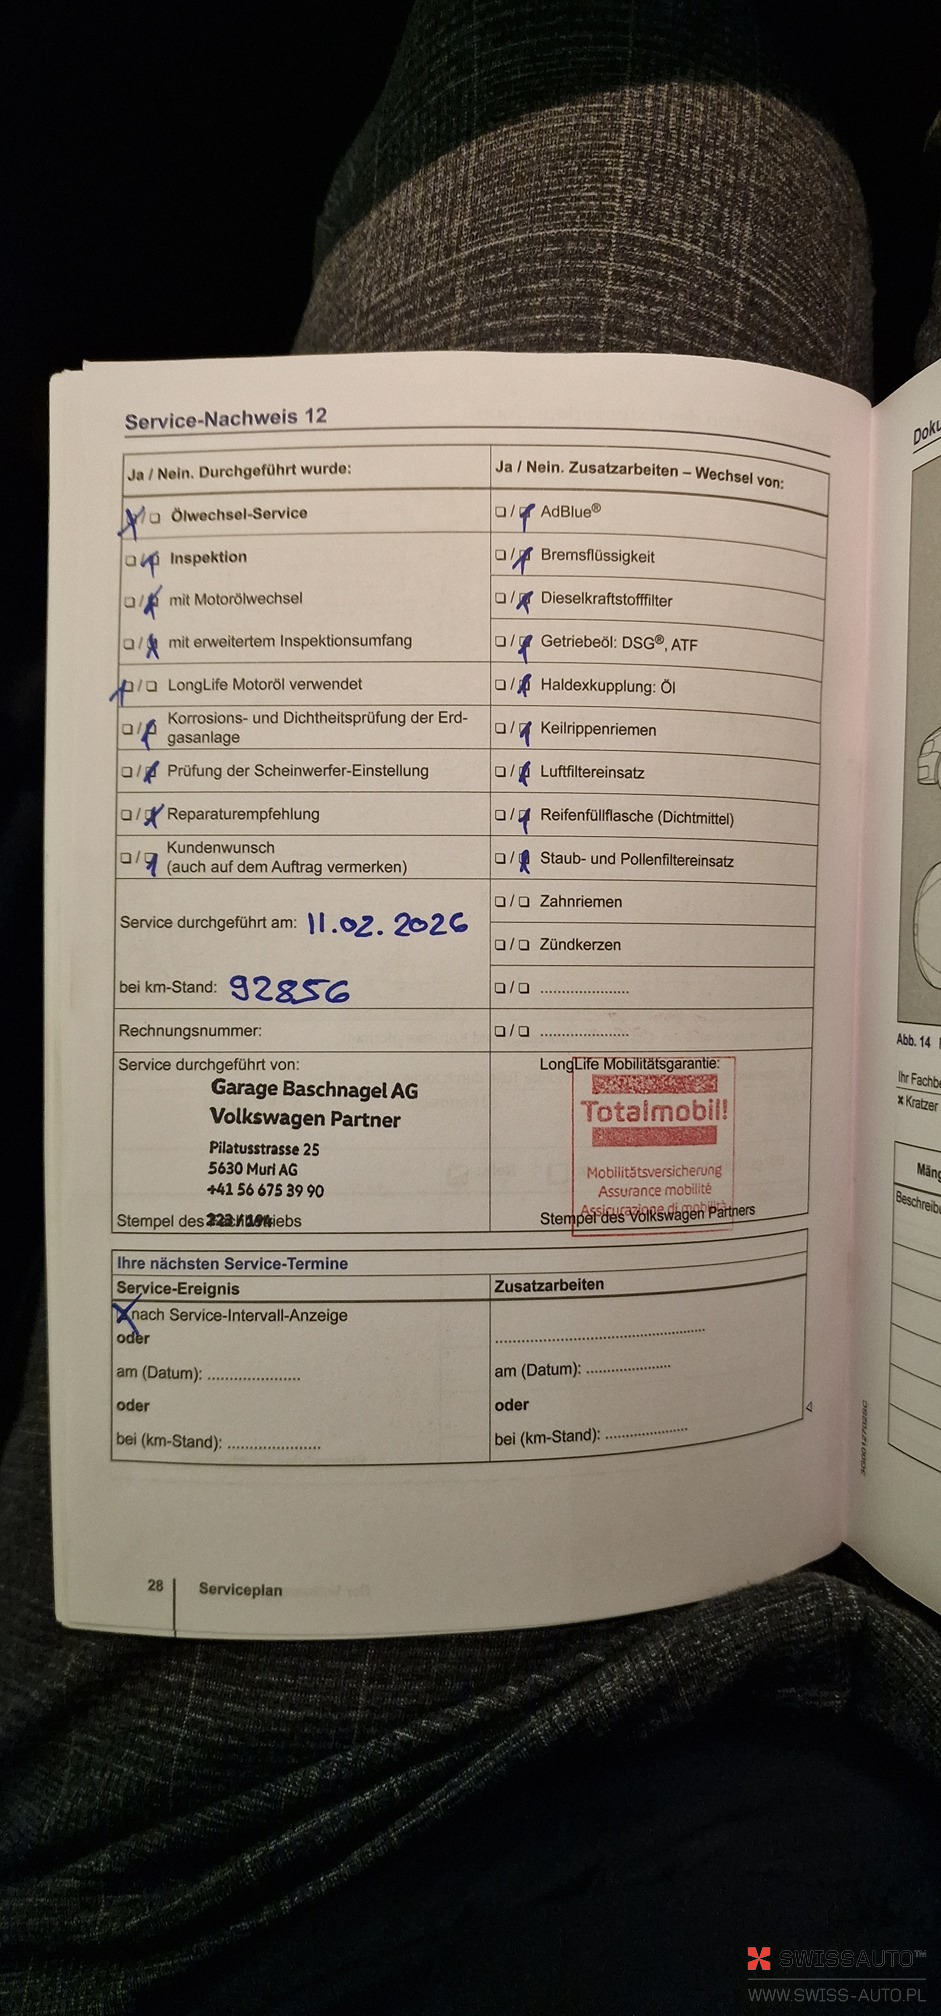 Service-Nachweis 12
Ja / Nein. Durchgeführt wurde:
Ölwechsel-Service
Inspektion
mit Motorölwechsel
mit erweitertem Inspektionsumfang
LongLife Motoröl verwendet
Korrosions- und Dichtheitsprüfung der Erd-
gasanlage
Prüfung der Scheinwerfer-Einstellung
Reparaturempfehlung
Kundenwunsch
(auch auf dem Auftrag vermerken)
Service durchgeführt am: 11.02.2026
bei km-Stand: 92856
Rechnungsnummer:
Ja / Nein. Zusatzarbeiten – Wechsel von:
AdBlue®
Bremsflüssigkeit
Dieselkraftstofffilter
Getriebeöl: DSG®, ATF
Haldexkupplung: Öl
Keilrippenriemen
Luftfiltereinsatz
Reifenfüllflasche (Dichtmittel)
Staub- und Pollenfiltereinsatz
Zahnriemen
Zündkerzen
....................
....................
Service durchgeführt von:
Garage Baschnagel AG
Volkswagen Partner
Pilatusstrasse 25
5630 Muri AG
+41 56 675 39 90
Stempel des
LongLife Mobilitätsgarantie:
Totalmobil!
Mobilitätsversicherung
Assurance mobilité
Assicurazione di mobilità
Stempel des Volkswagen Partners
Ihre nächsten Service-Termine
Service-Ereignis
nach Service-Intervall-Anzeige
oder
am (Datum): ....................
oder
bei (km-Stand): ....................
Zusatzarbeiten
..............................................
am (Datum): ..................
oder
bei (km-Stand): ..................
28
Serviceplan
Doku
Abb. 14
Ihr Fachbe
x Kratzer
Mäng
Beschreibu
SWISSAUTO™
WWW.SWISS-AUTO.PL